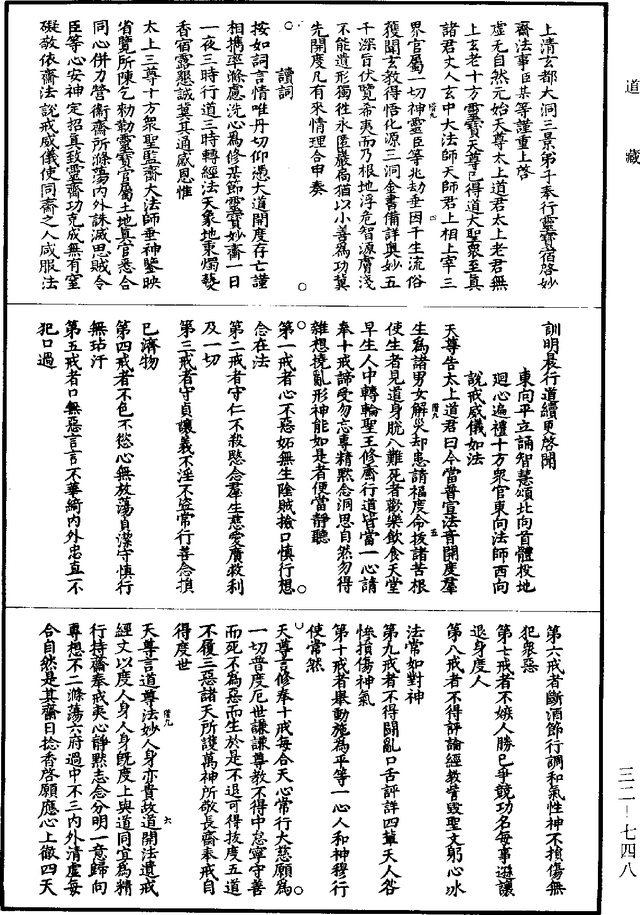 道藏
上清玄都大洞三景弟子奉行靈寶宿啓妙
齋法事臣某等謹重上啓
虛无自然元始天尊太上道君太上老君無
上玄老十方靈寶天尊已得道大聖衆至真
諸君丈人玄中大法師天師君上相上宰三
界官屬一切神靈臣等兆劫垂因千生流俗
獲聞玄教得悟化源三洞金書備詳奧妙五
千深旨伏覽希夷而乃根地浮危智源膚淺
不能遺形獨往永匿巖嵩猶以小善爲功冀
先開度凡有來情理合申奏
讀詞
按如詞言情唯丹切仰憑大道開度存亡謹
相携率滌慮洗心爲修某節靈寶妙齋一日
一夜三時行道三時轉經法天象地東燭爇
香宿露懇誠冀其通感恩惟
太上三尊十方衆聖監齋大法師垂神鑒映
省覽所陳乞勑勒靈寶官屬土地真官悉合
同心併力營衞齋所滌蕩内外誅滅思賊令
臣等心安神定招真致靈齋功克成無有窒
礙敬依齋法說戒威儀使同齋之人咸服法
訓明晨行道續更啓聞
東向平立誦智慧頌北向首體投地
迴心遍禮十方衆官東向法師西向
說戒威儀如法
天尊告太上道君曰今當普宣法音開度羣
生爲諸男女解災却患請福度命拔諸苦根
使生者見道身脫八難死者歡樂飲食天堂
早生人中轉輪聖王修齋行道皆當一心請
奉十戒諦受勿忘專精默念洞思自然勿得
雜想撓亂形神能如是者便當靜聽
第一戒者心不惡妬無生陰賊撿口慎行想
念在法
第二戒者守仁不殺愍念羣生慈愛廣救利
及一切
第三戒者守貞讓義不淫不盜常行善念損
己濟物
第四戒者不色不慾心無放蕩貞潔守慎行
無玷汙
第五戒者口無惡言言不華綺内外忠直不
犯口過
第六戒者斷酒節行調和氣性神不損傷無
犯衆惡
第七戒者不嫉人勝已爭競功名每事遜讓
退身度人
第八戒者不得評論經教訾毀聖文躬心承
法常如對神
第九戒者不得鬪亂口舌評詳四輩天人咎
慘損傷神氣
第十戒者舉動施爲平等一心人和神穆行
使常然
天尊言修奉十戒每合天心常行大慈願爲
一切普度厄世謙謙尊教不得中怠寧守善
而死不爲惡而生於是不退可得拔度五道
不履三惡諸天所護萬神所敬長齋奉戒自
得度世
天尊言道尊法妙人身亦貴故道開法遺戒
經文以度人身人身既度上與道同宜爲精
行持齋奉戒夷心靜默志念分明一意歸向
專想不二滌蕩六府過中不三内外清虛每
合自然是其齋日捻香啓願應心上徹四天
三二—七四八